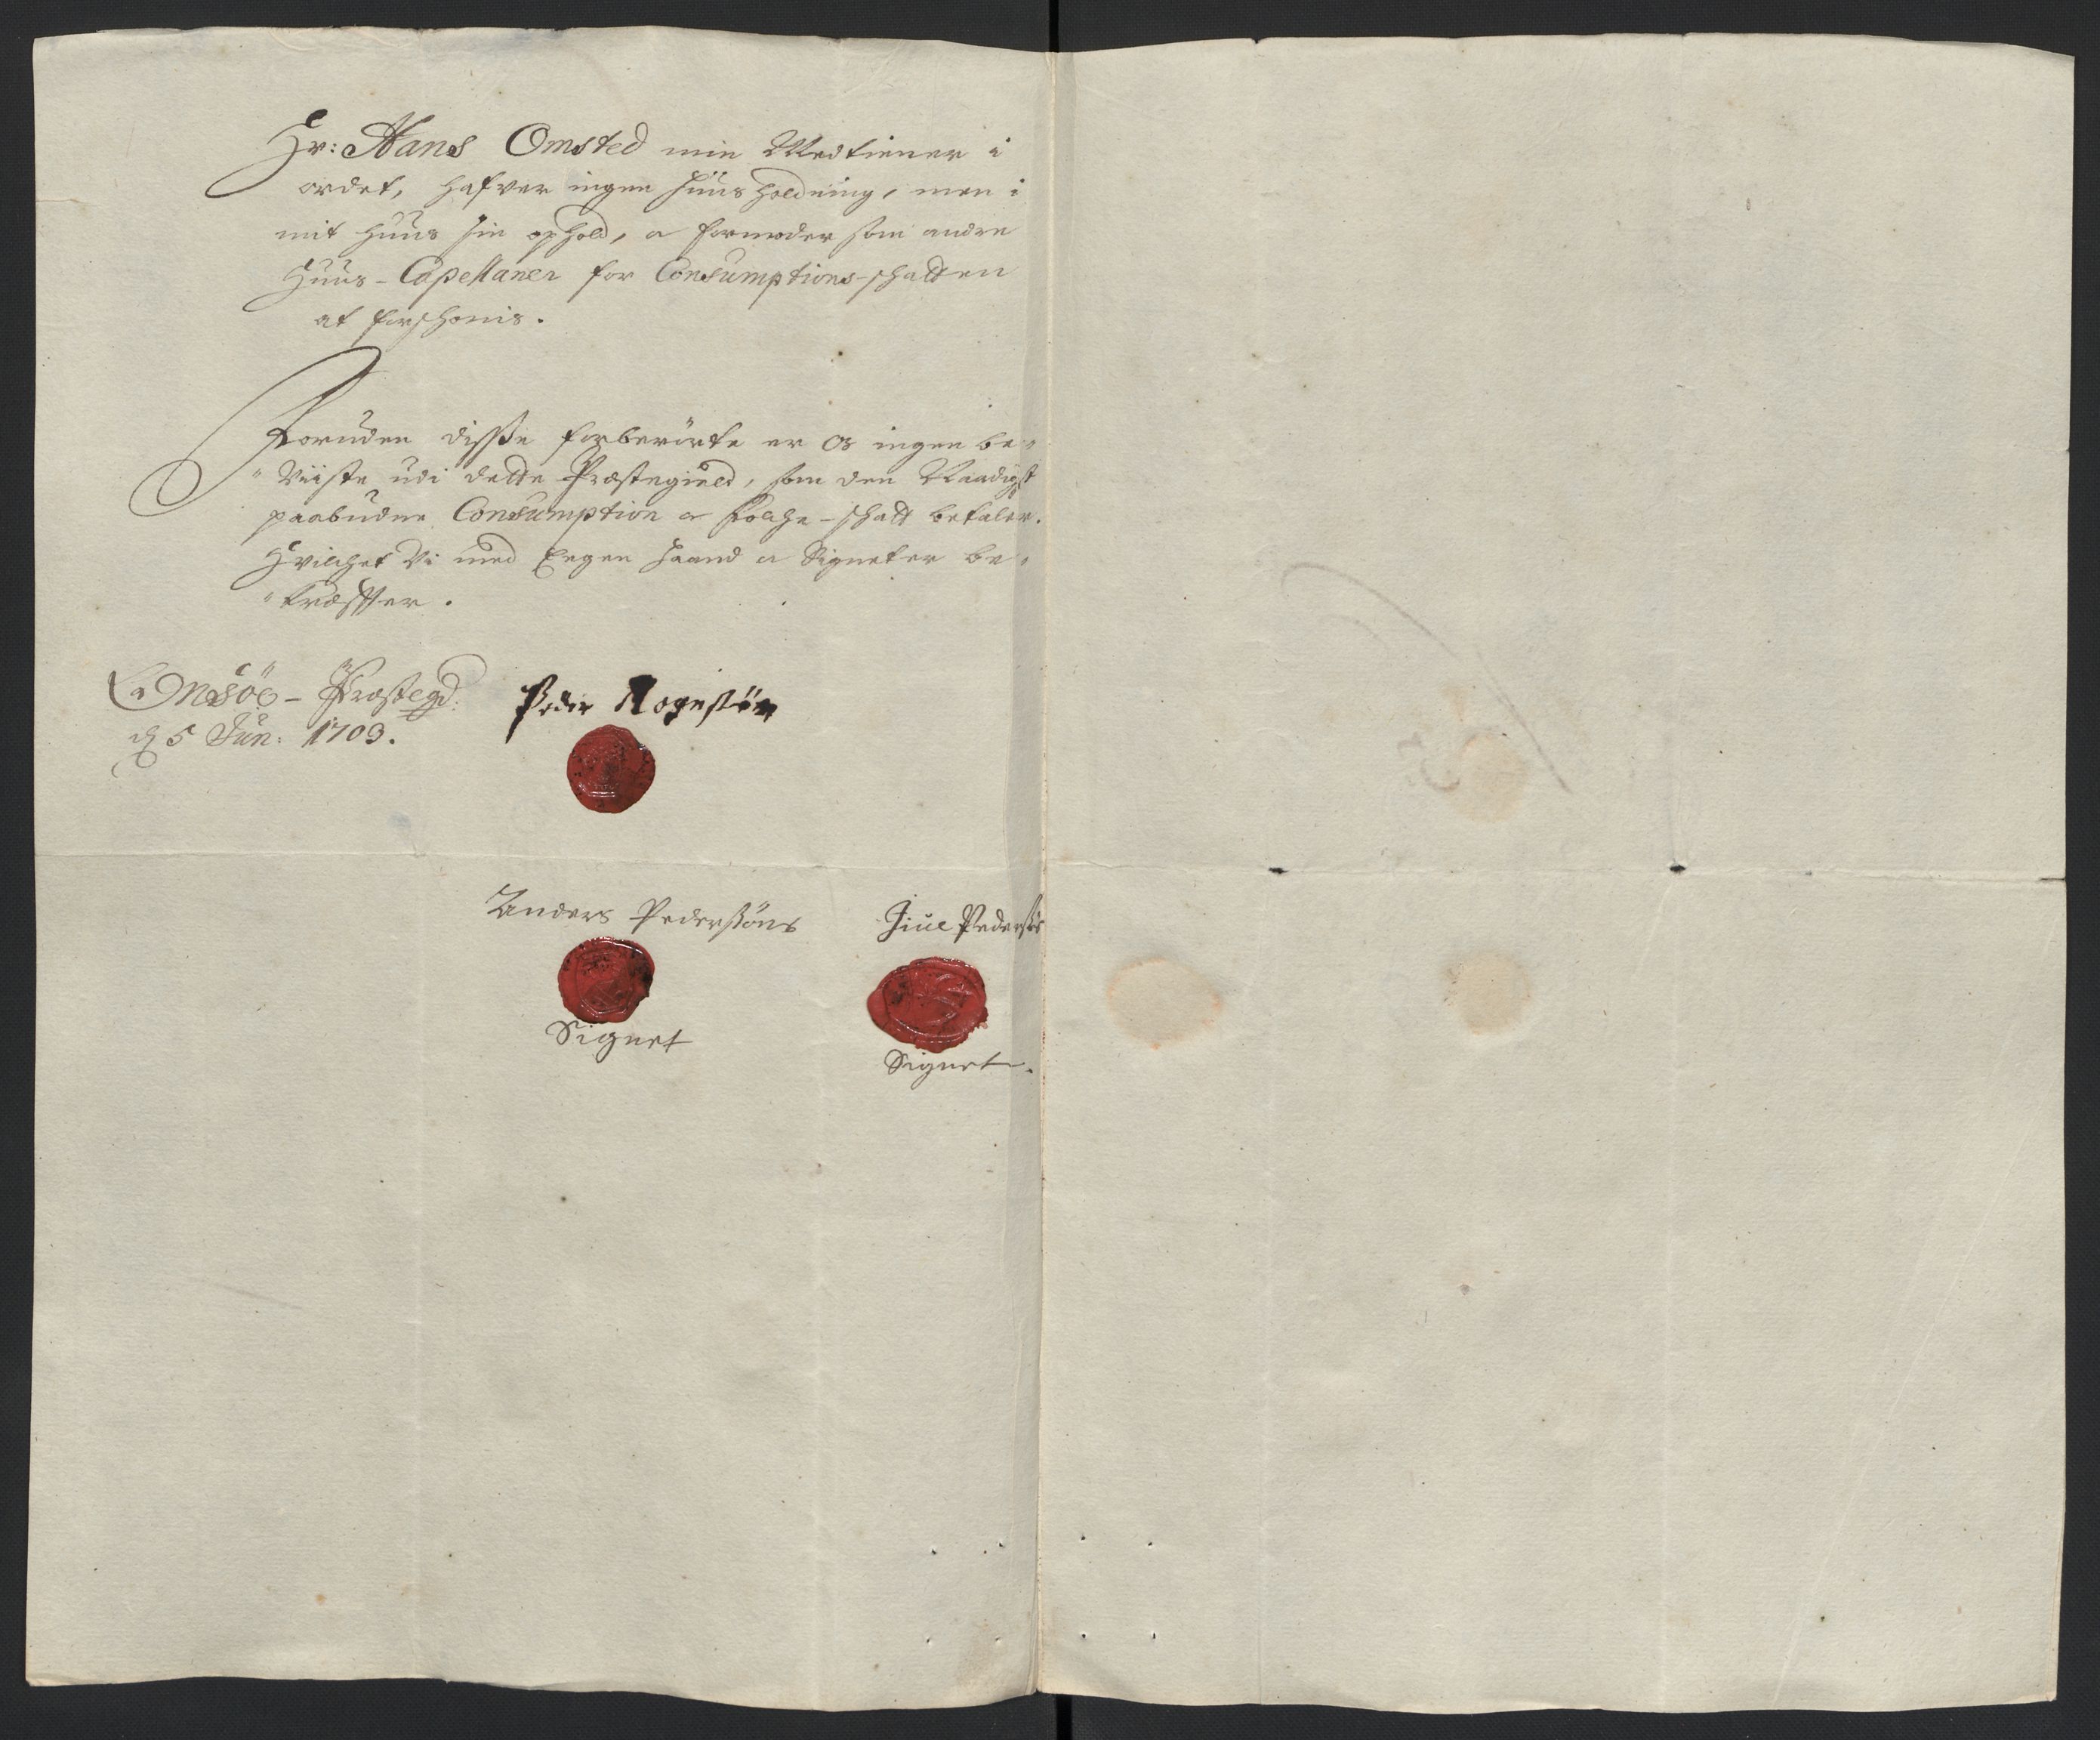 Hr: Hans Omsted min Medtiener i
ordet, hafver ingen huusholdning, men i
mit huus sin ophold, o formoder som andre
Huus-Capellaner for Consumptions-schatten
at forschonis.
Foruden disse forberörte er os ingen be-
"viiste udi dette Præstegield, som den Naadigst
paabudne Consumption o folche-schatt betaler.
Hvilchet vi med Eegen haand o Signeter be-
"kræffter.
Onsöe-Præstegd:
d 5 Jun: 1703.
Peder
Anders Pedersöns
Signet
Jiul Pedersöns
Signet.